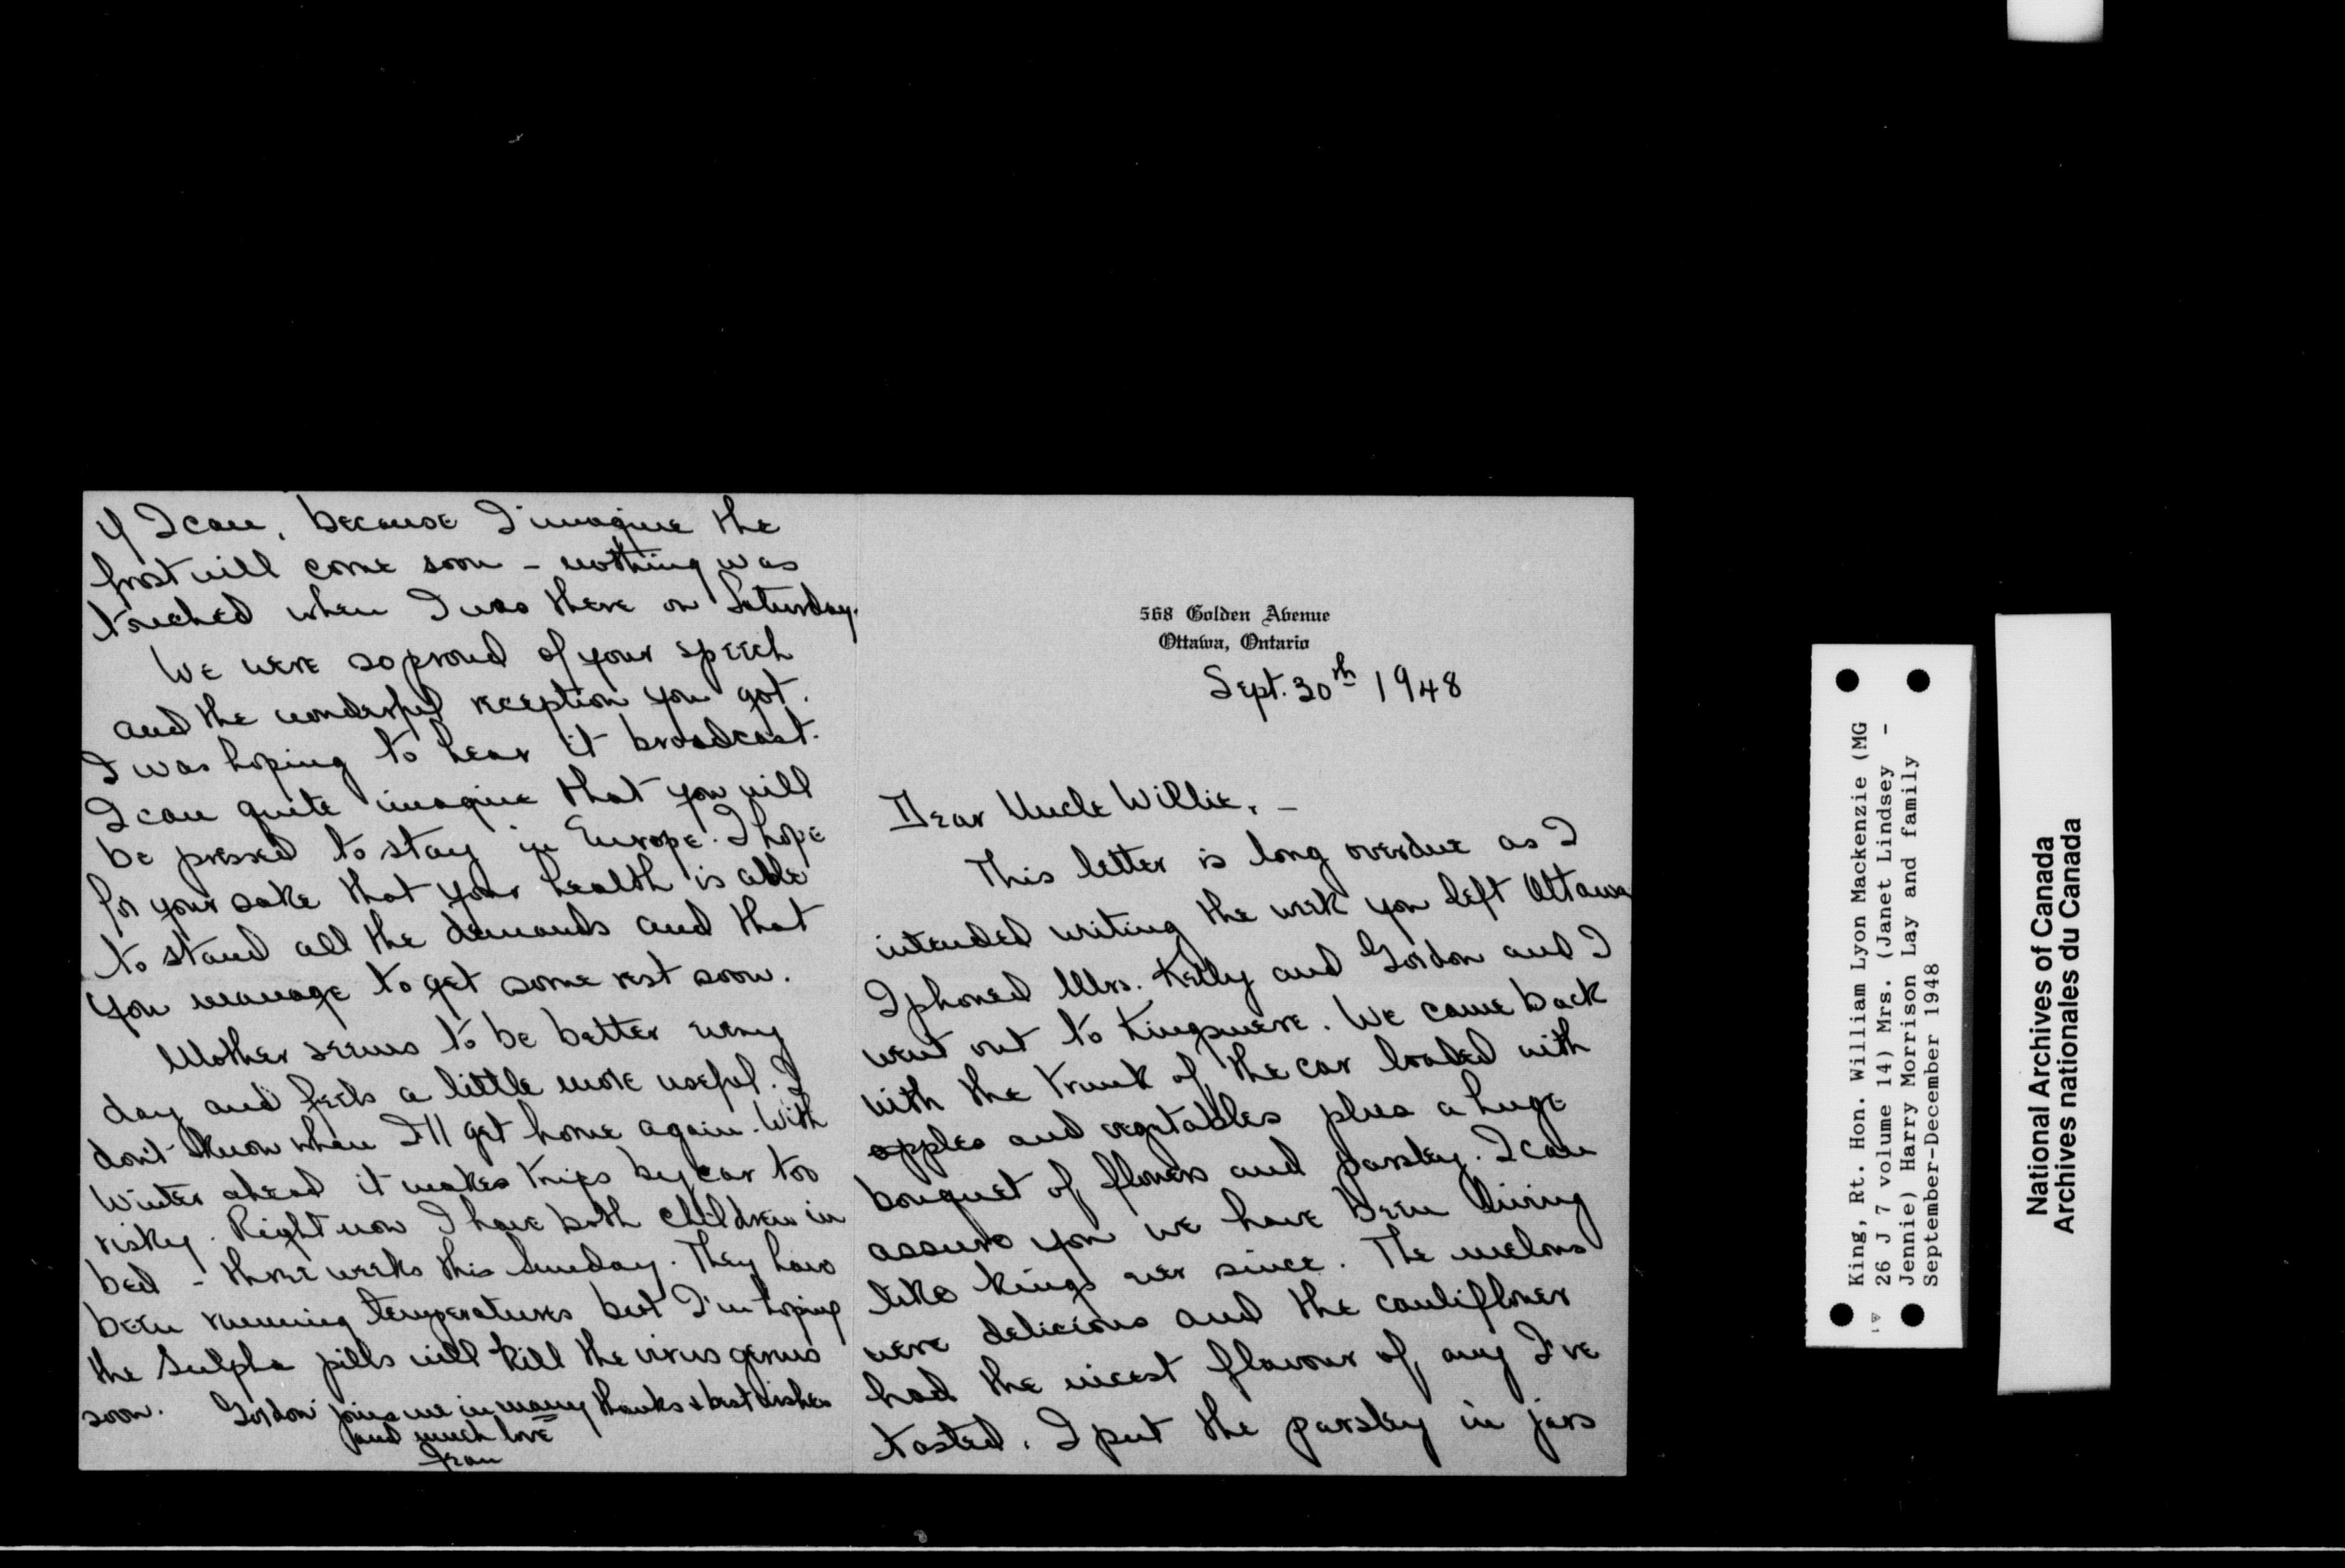 568 Golden Avenue
Ottawa, Ontario
Sept. 30th 1948
Dear Uncle Willie, –
This letter is long overdue as I
intended writing the week you left Ottawa
I phoned Mrs. Kelly and Gordon and I
went out to Kingsmere. We came back
with the trunk of the car loaded with
apples and vegetables plus a huge
bouquet of flowers and parsley. I can
assure you we have been living
like kings ever since. The melons
were delicious and the cauliflower
had the nicest flavour of any I've
tasted. I put the parsley in jars
if I can, because I imagine the
frost will come soon – nothing was
touched when I was there on Saturday.
We were so proud of your speech
and the wonderful reception you got.
I was hoping to hear it broadcast.
I can quite imagine that you will
be pressed to stay in Europe. I hope
for your sake that your health is able
to stand all the demands and that
you manage to get some rest soon.
Mother seems to be better every
day and feels a little more useful. I
don't know when I'll get home again. With
Winter ahead it makes trips by car too
risky. Right now I have both children in
bed – three weeks this Sunday. They have
been running temperatures but I'm hoping
the Sulpha pills will kill the virus germs
soon. Gordon joins me in many thanks & best wishes
and much love
King, Rt. Hon. William Lyon Mackenzie (MG
26 J 7 volume 14) Mrs. (Janet Lindsey -
Jennie) Harry Morrison Lay and family
September-December 1948
National Archives of Canada
Archives nationales du Canada